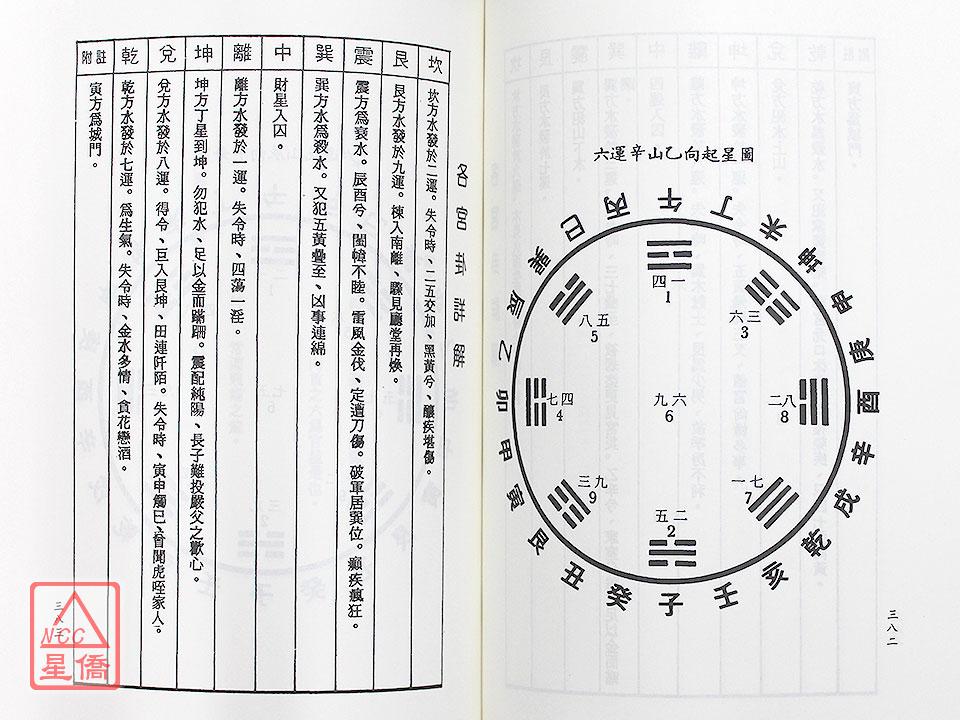 六運辛山乙向起星圖
午 丁 未 坤 申 庚 酉 辛 戌 乾 亥 壬 子 癸 丑 艮 寅 甲 卯 乙 辰 巽 巳 丙
四一
1
六三
3
二八
8
一七
7
五二
2
三九
9
七四
4
八五
5
九六
6
三八二
各宮斷訣解
坎
坎方水發於二運。失令時、二五交加、黑黃兮、釀疾堪傷。
艮
艮方水發於九運。棟入南離、驟見廳堂再煥。
震
震方為衰水。辰酉兮、闈幃不睦。雷風金伐、定遭刀傷。破軍居巽位。癲疾瘋狂。
巽
巽方水為殺水。又犯五黃疊至、凶事連綿。
中
財星入囚。
離
離方水發於一運。失令時、四蕩一淫。
坤
坤方丁星到坤。勿犯水、足以金而蹣跚。震配純陽、長子難投嚴父之歡心。
兌
兌方水發於八運。得令、巨入艮坤、田連阡陌。失令時、寅申觸巳、曾聞虎咥家人。
乾
乾方水發於七運。為生氣。失令時、金水多情、貪花戀酒。
附註
寅方為城門。
三八三
NCC
星僑